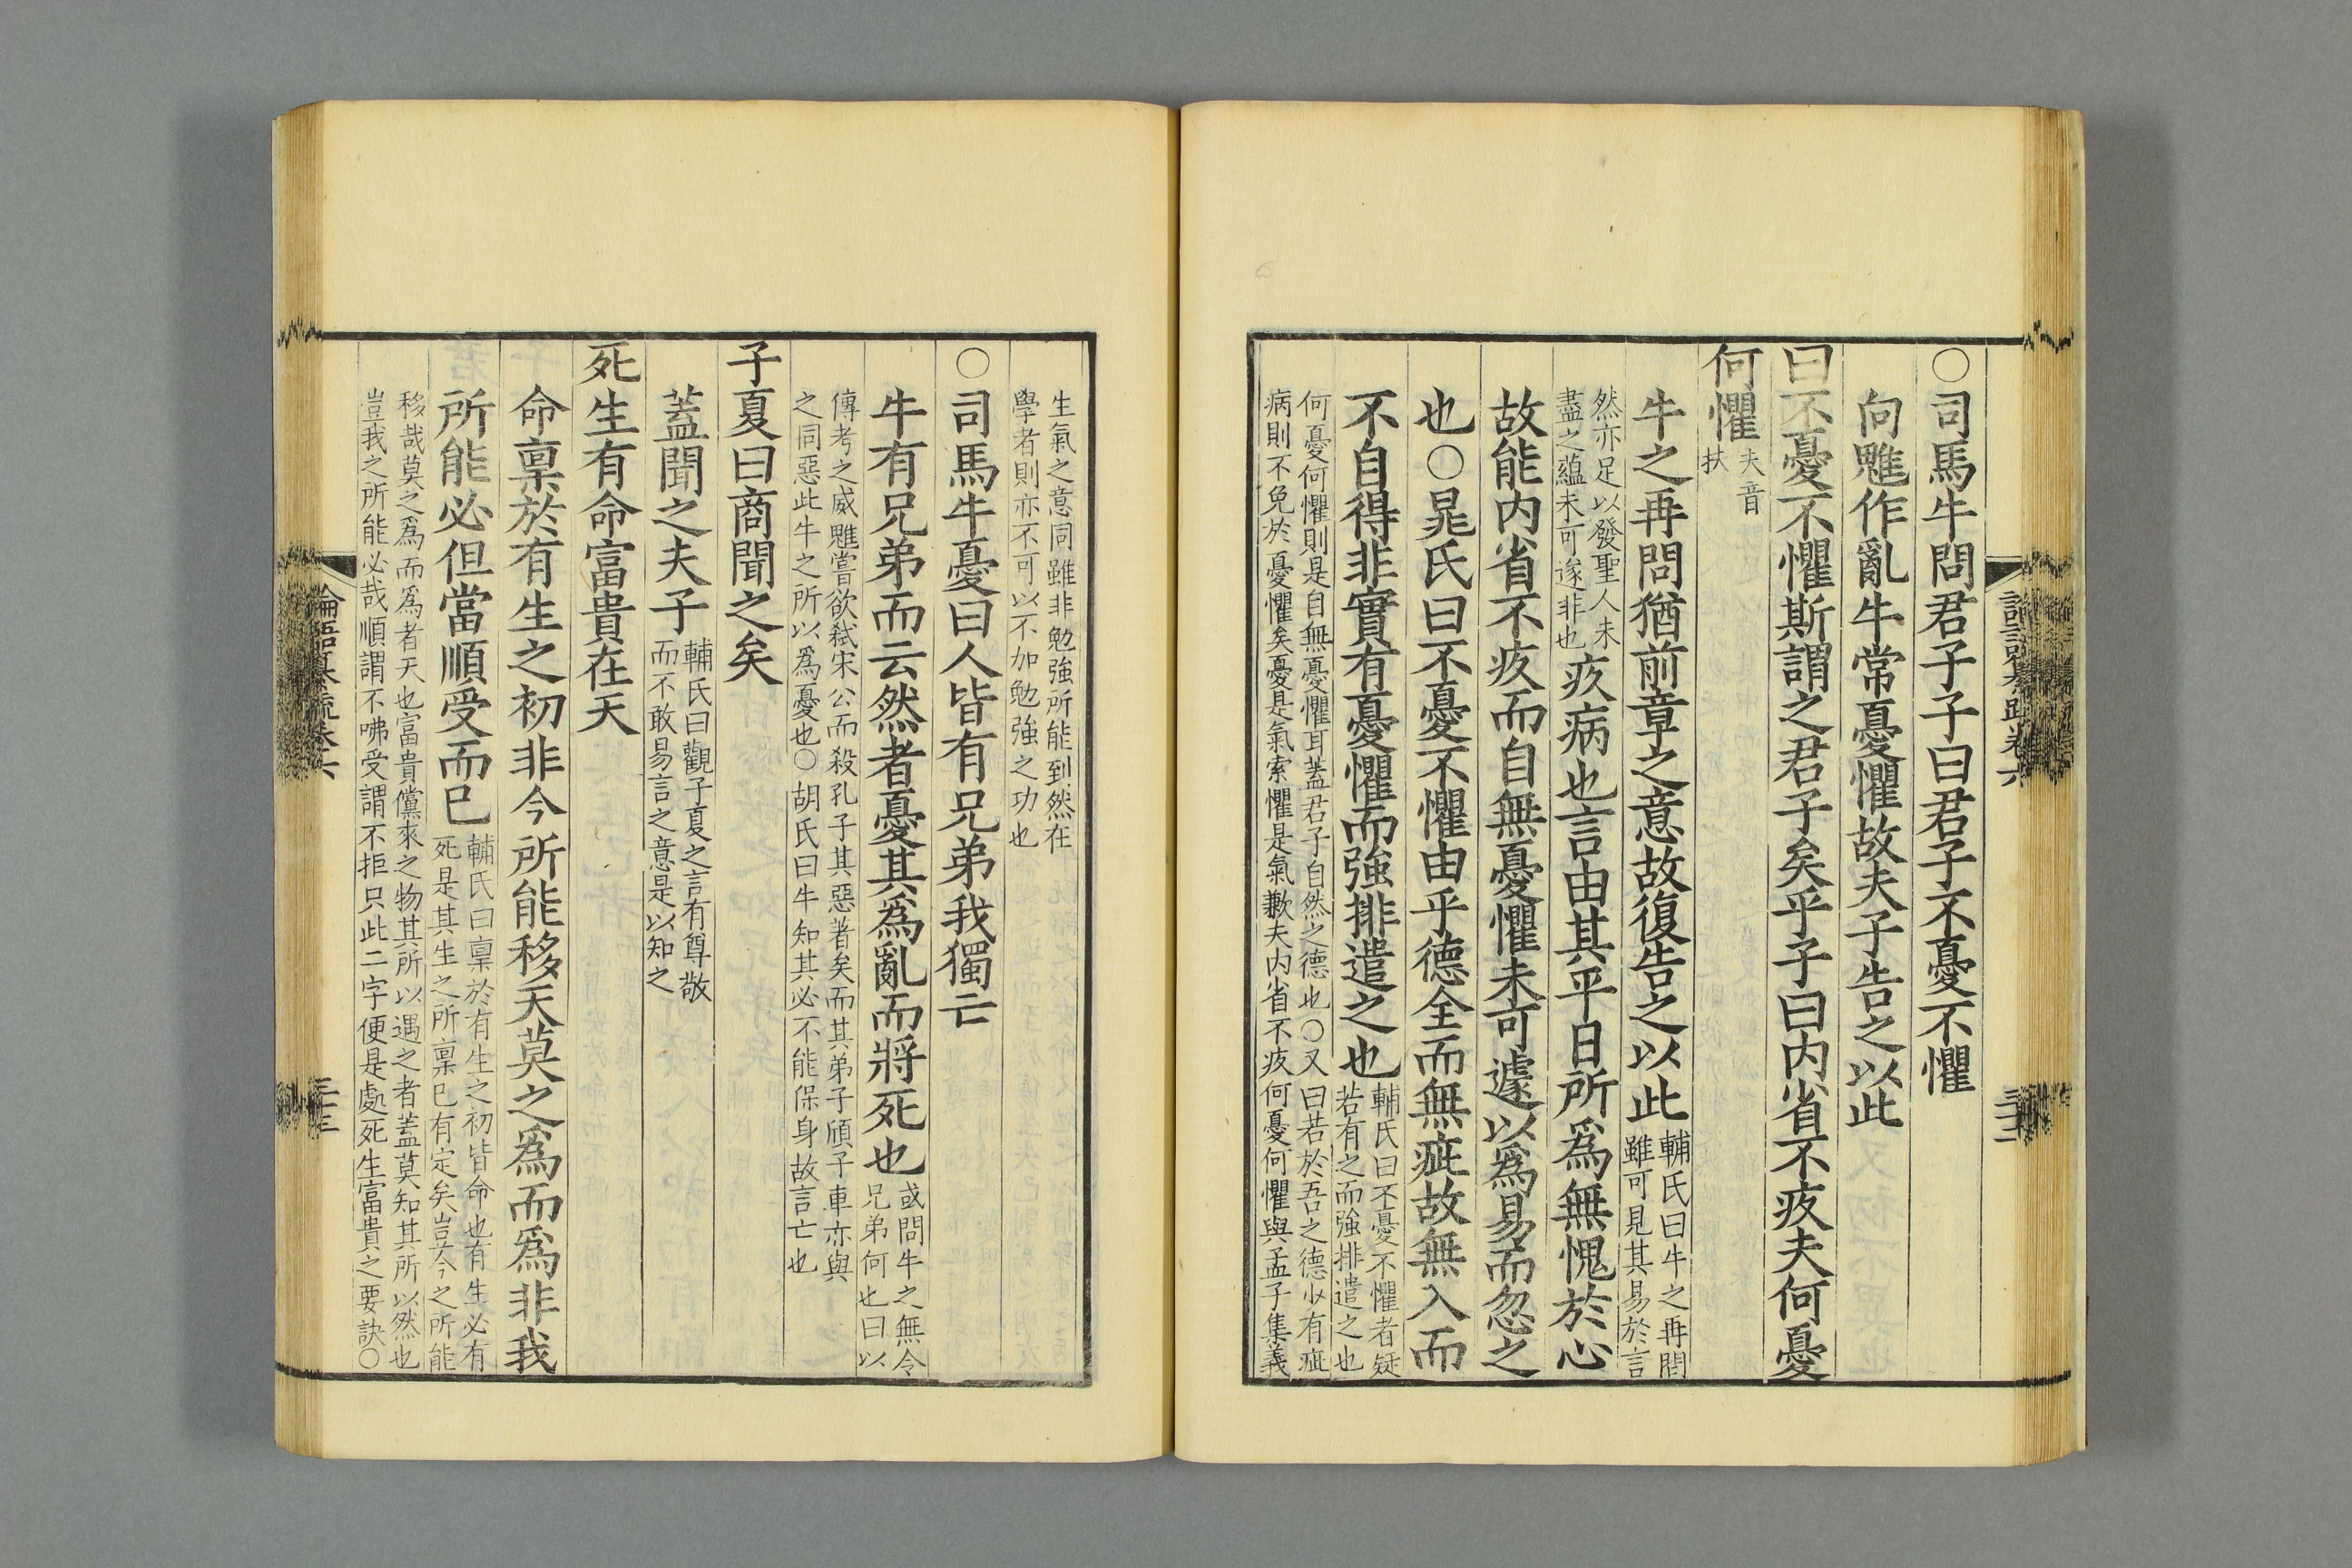 ○司馬牛問君子子曰君子不憂不懼
向魋作亂牛常憂懼故夫子告之以此
曰不憂不懼斯謂之君子矣乎子曰内省不疚夫何憂
何懼夫音
扶
牛之再問猶前章之意故復告之以此輔氏曰牛之再問
雖可見其易於言
然亦足以發聖人未
盡之蘊未可遂非也疚病也言由其平日所爲無愧於心
故能内省不疚而自無憂懼未可遽以爲易而忽之
也○晁氏曰不憂不懼由乎德全而無疵故無入而
不自得非實有憂懼而強排遣之也輔氏曰不憂不懼者疑
若有之而強排遣之也
何憂何懼則是自無憂懼耳蓋君子自然之德也○又曰若於吾之德少有疵
病則不免於憂懼矣憂是氣索懼是氣歉夫内省不疚何憂何懼與孟子集義
生氣之意同雖非勉強所能到然在
學者則亦不可以不加勉強之功也
○司馬牛憂曰人皆有兄弟我獨亡
牛有兄弟而云然者憂其爲亂而將死也或問牛之無令
兄弟何也曰以
傳考之威魋嘗欲弑宋公而殺孔子其惡著矣而其弟子頎子車亦與
之同惡此牛之所以爲憂也○胡氏曰牛知其必不能保身故言亡也
子夏曰商聞之矣
蓋聞之夫子輔氏曰觀子夏之言有尊敬
而不敢易言之意是以知之
死生有命富貴在天
命稟於有生之初非今所能移天莫之爲而爲非我
所能必但當順受而已輔氏曰稟於有生之初皆命也有生必有
死是其生之所稟已有定矣豈今之所能
移哉莫之爲而爲者天也富貴儻來之物其所以遇之者蓋莫知其所以然也
豈我之所能必哉順謂不咈受謂不拒只此二字便是處死生富貴之要訣○